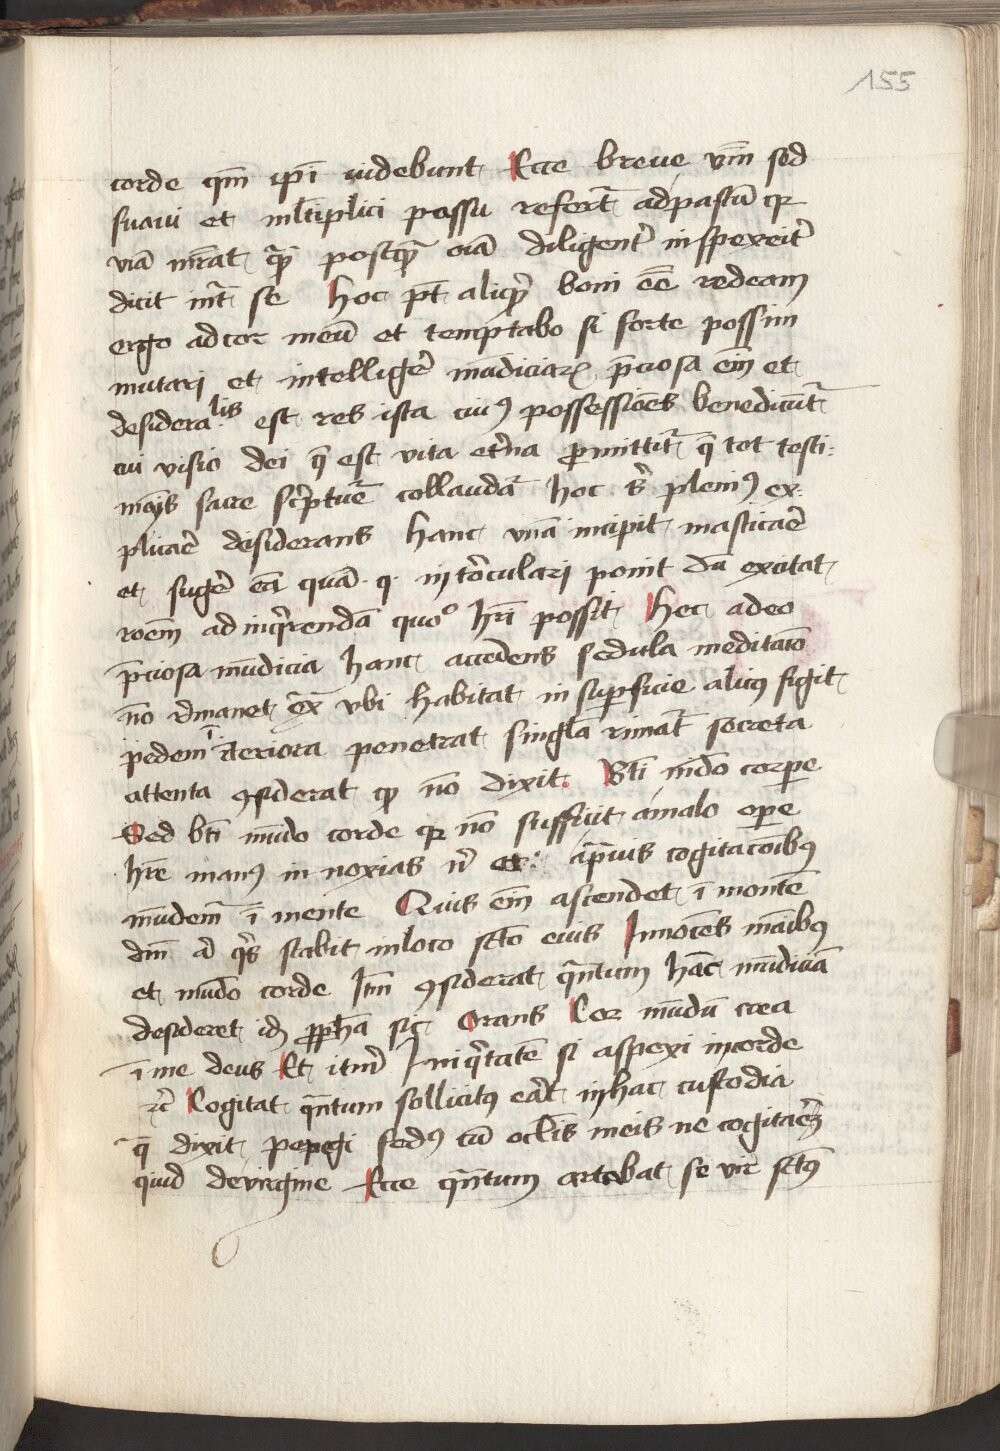 155
corde qm̄ ip̄i uidebunt Ecce breue vm̄ sed
suaui et ml̄tiplici passu refert̄ ad pastū qꝛ
viā mr̄at q̄i postq̄ oīa diligent̾ inspexeit̾
dicit int̄ se Hoc pt̄ aliq̄ boni eē redeam
ergo ad cor meū et temptabo si forte possim
mutari et intelliger̄ mūdiciaꝫ p̄ciosa em̄ et
desideralis est res ista cuiꝰ possessiōēs benedicūt᷑
cui visio dei q̄ est vita et̾na ꝓmittit᷑ q̄ tot testi:
mōijs sacre sc̾ptu᷑e collaudat᷑ hoc g̾ pleniꝰ ex:
plicar̄ desiderans hanc vuā incipit masticar̄
et suger̄ eā quā .q. in to᷑culari ponit dū excitat
roēm ad inq̾rendā quoº hr̄i possit Hec adeo
p̄ciosa mūdicia hanc accedens sedula meditaco᷑
nō remanet ext᷑ vbi habitat in suꝑficie alicꝰ figit
pedem īteriora penetrat singl̄a rimat᷑ secreta
attenta ꝯsiderat qꝫ nō dixit. Bt̄i mūdo corꝑe
Sed bt̄i mūdo corde qꝛ nō sufficit a malo oꝑe
hr̄e manꝰ innoxias n̾ et a p̄uis cogitacōibꝰ
mūdem᷑ ī mente Quis em̄ ascendet ī montē
dn̄i a᷑ q̾s stabit in loco sct̄o eius Innocēs māibꝰ
et mūdo corde Itm̄ ꝯsiderat q̄ntum hāc mūdiciā
desideret idē ꝓph̄a sic Orans Cor mūdū crea
ī me deus Et itm̄ Iniq̾tatē si aspexi in corde
ꝛc̄ Cogitat q̄ntum sollicitꝰ erat̄ in hac custodia
q̄ dixit pepegi fedꝰ cū ocl̄is meis ne cogitar̄ē
quid de virgine Ecce q̄ntum artabat se vir sct̄ꝰ